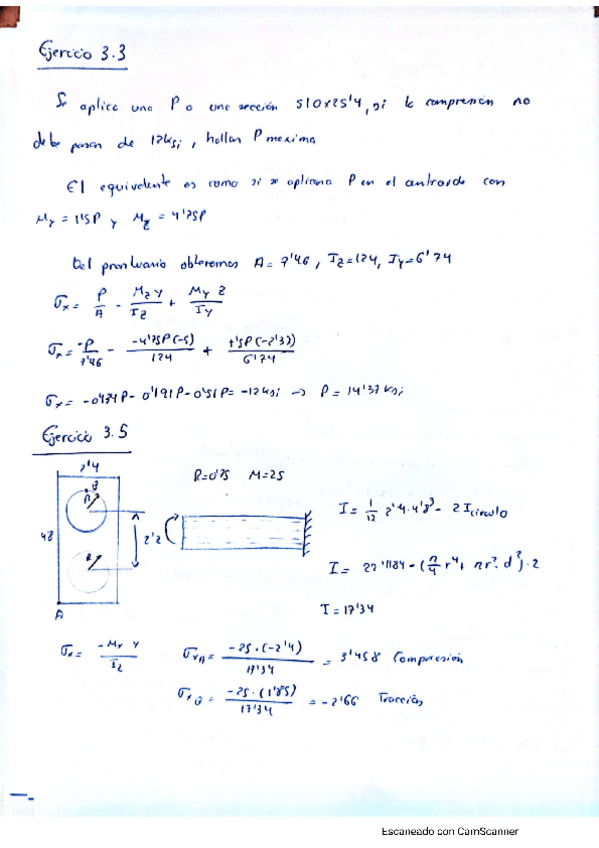 Ejercicio 3.3
Se aplica una P a una sección S10x25'4, si la compresión no
debe pasar de 12ksi, hallar P maxima
El equivalente es como si se aplicara P en el centroide con
My = 1'5P y Mz = 4'75P
Del prontuario obtenemos A = 7'46, Iz=124, Iy=6'74
σx = P/A - Mz y/Iz + My z/Iy
σx = -P/7'46 - -4'75P(-5)/124 + 1'5P(-2'33)/6'74
σx = -0'134P - 0'191P - 0'51P = -12ksi → P = 14'37 ksi
Ejercicio 3.5
2'4
B
R
R=0'75 M=25
I = 1/12 2'4·4'8³ - 2 Icirculo
48
2'2
R
I = 22'1184 - (π/4 r⁴ + πr²·d²)·2
A
I = 17'34
σx = -Mx y/Iz
σxA = -25·(-2'4)/17'34 = 3'458 Compresión
σxB = -25·(1'85)/17'34 = -2'66 Tracción
Escaneado con CamScanner